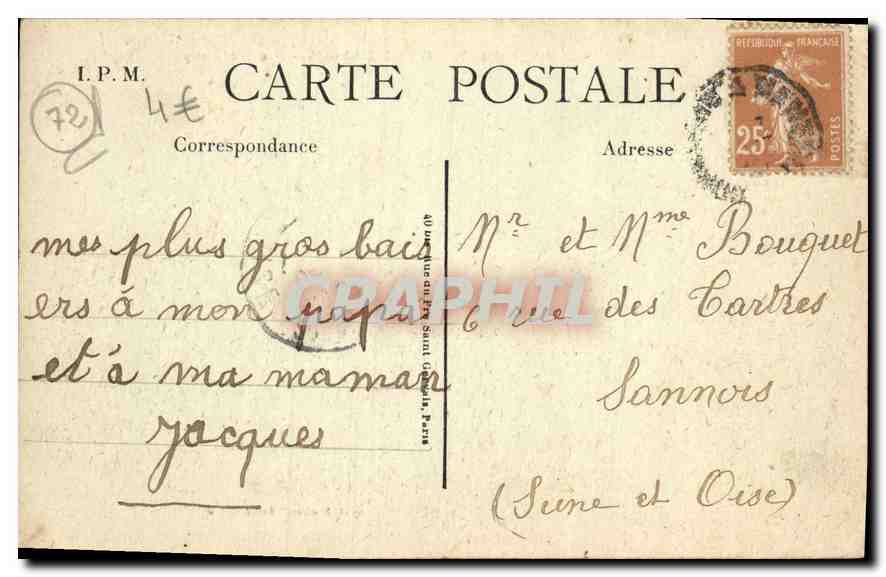 I. P. M.
CARTE POSTALE
72
4€
Correspondance
Adresse
REPUBLIQUE FRANÇAISE
25
POSTES
mes plus gros bais
ers à mon papa
et à ma maman
Jacques
Mr et Mme Bouquet
6 rue des Tartres
Sannois
(Seine et Oise)
Rue du Pré Saint Gervais, Paris
CPAPHIL